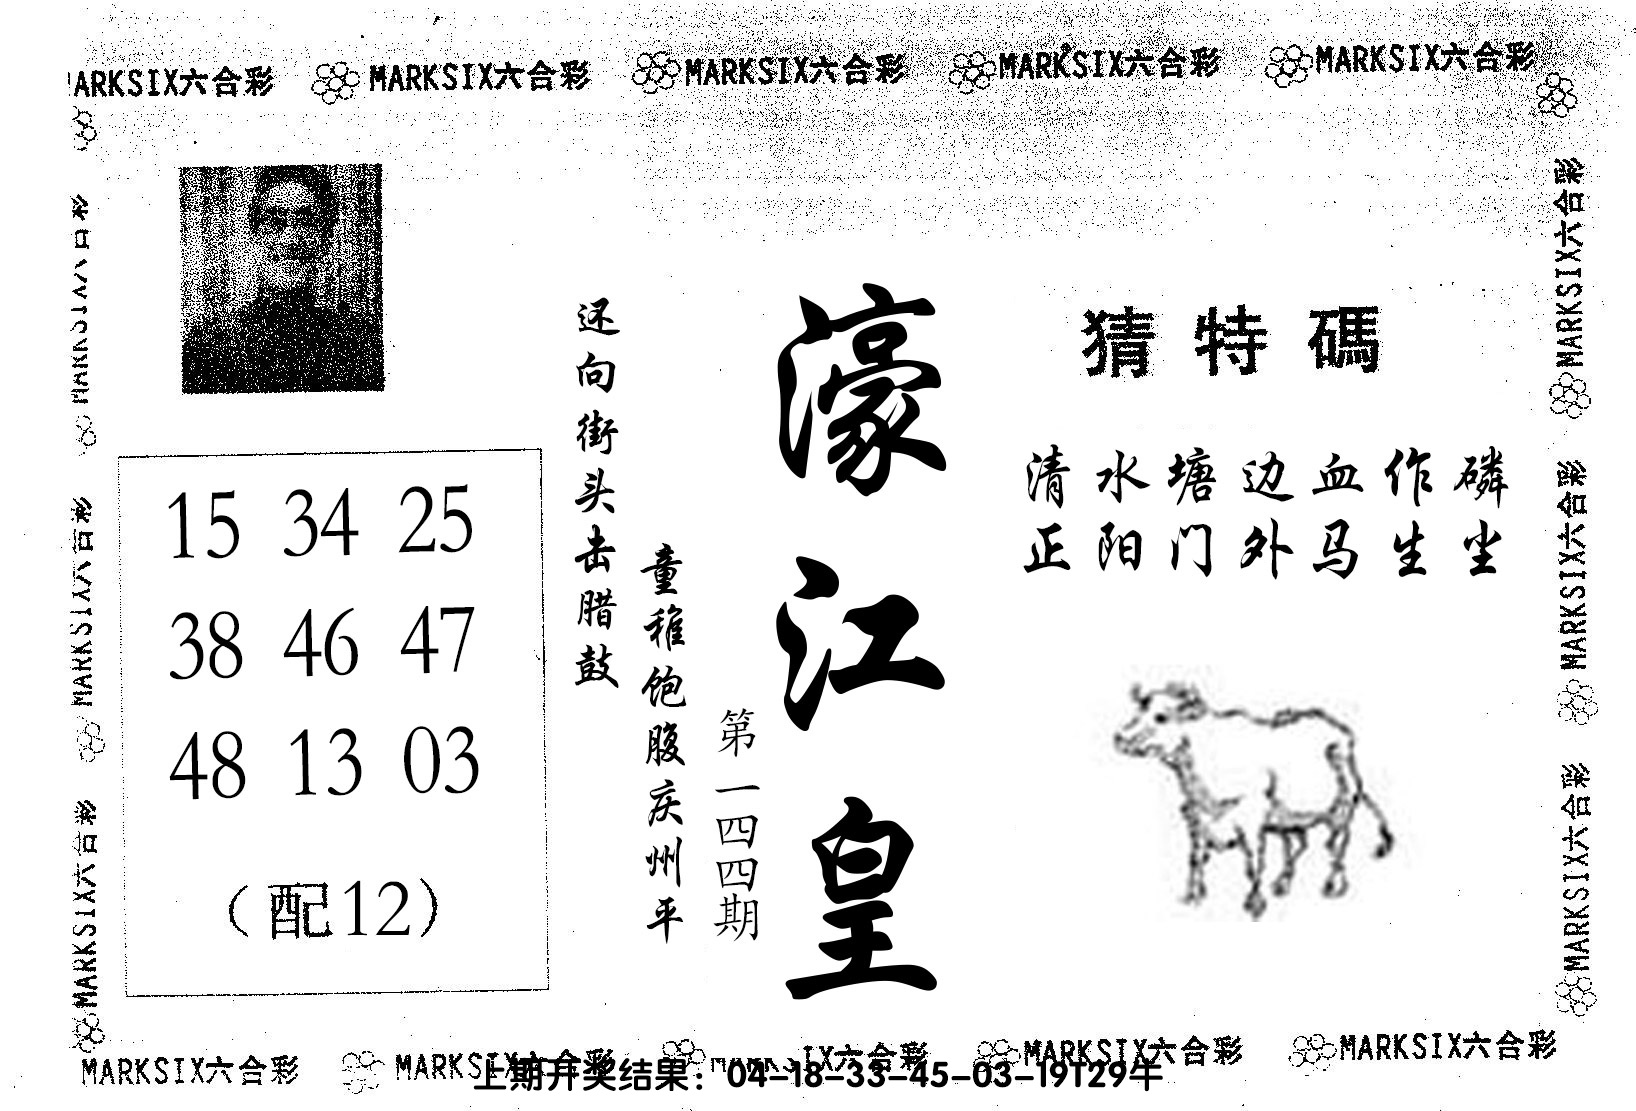 MARKSIX六合彩 MARKSIX六合彩 MARKSIX六合彩 MARKSIX六合彩
猜特碼
清水塘边血作磷
正阳门外马生尘
濠江皇
第一四四期
还向街头击腊鼓
童稚饱腹庆州平
15 34 25
38 46 47
48 13 03
（配12）
MARKSIX六合彩
MARKSIX六合彩
MARKSIX六合彩
MARKSIX六合彩
MARKSIX六合彩
MARKSIX六合彩 MARKSIX六合彩 MARKSIX六合彩 MARKSIX六合彩
上期开奖结果：04-18-33-45-03-19T29牛